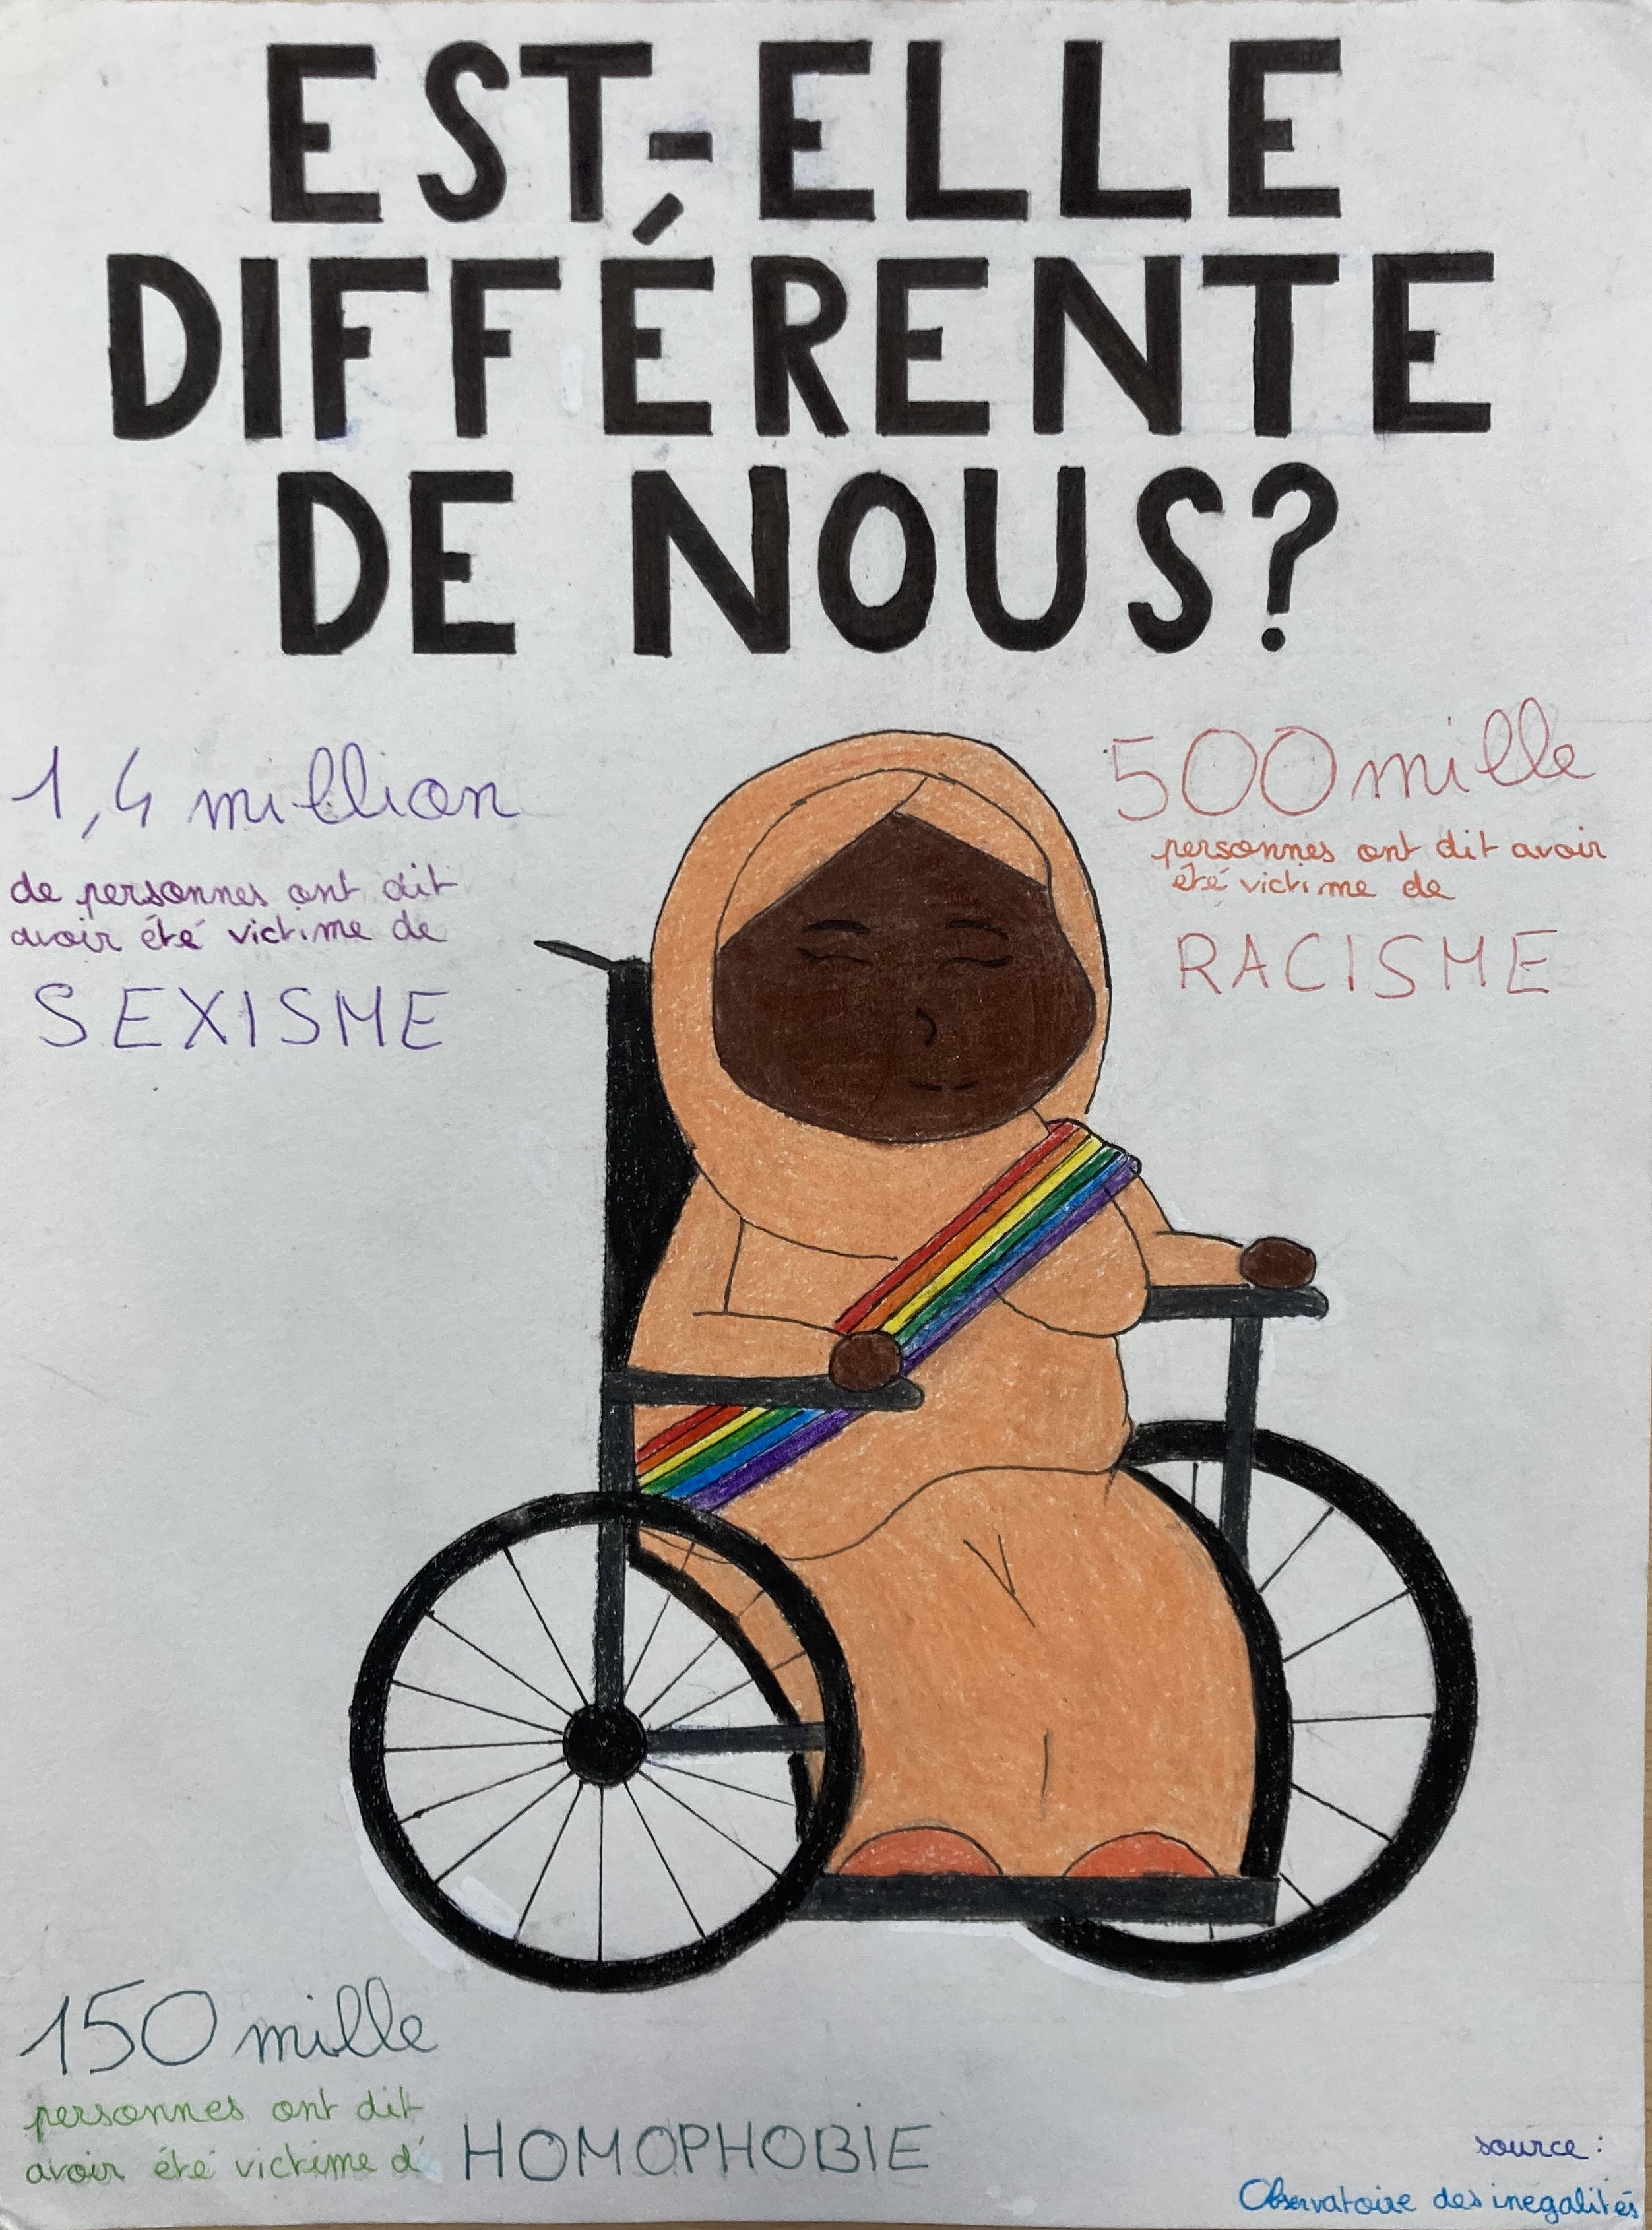 EST-ELLE
DIFFÉRENTE
DE NOUS?
1,4 million
de personnes ont dit
avoir été victime de
SEXISME
500 mille
personnes ont dit avoir
été victime de
RACISME
150 mille
personnes ont dit
avoir été victime d'
HOMOPHOBIE
source :
Observatoire des inegalités